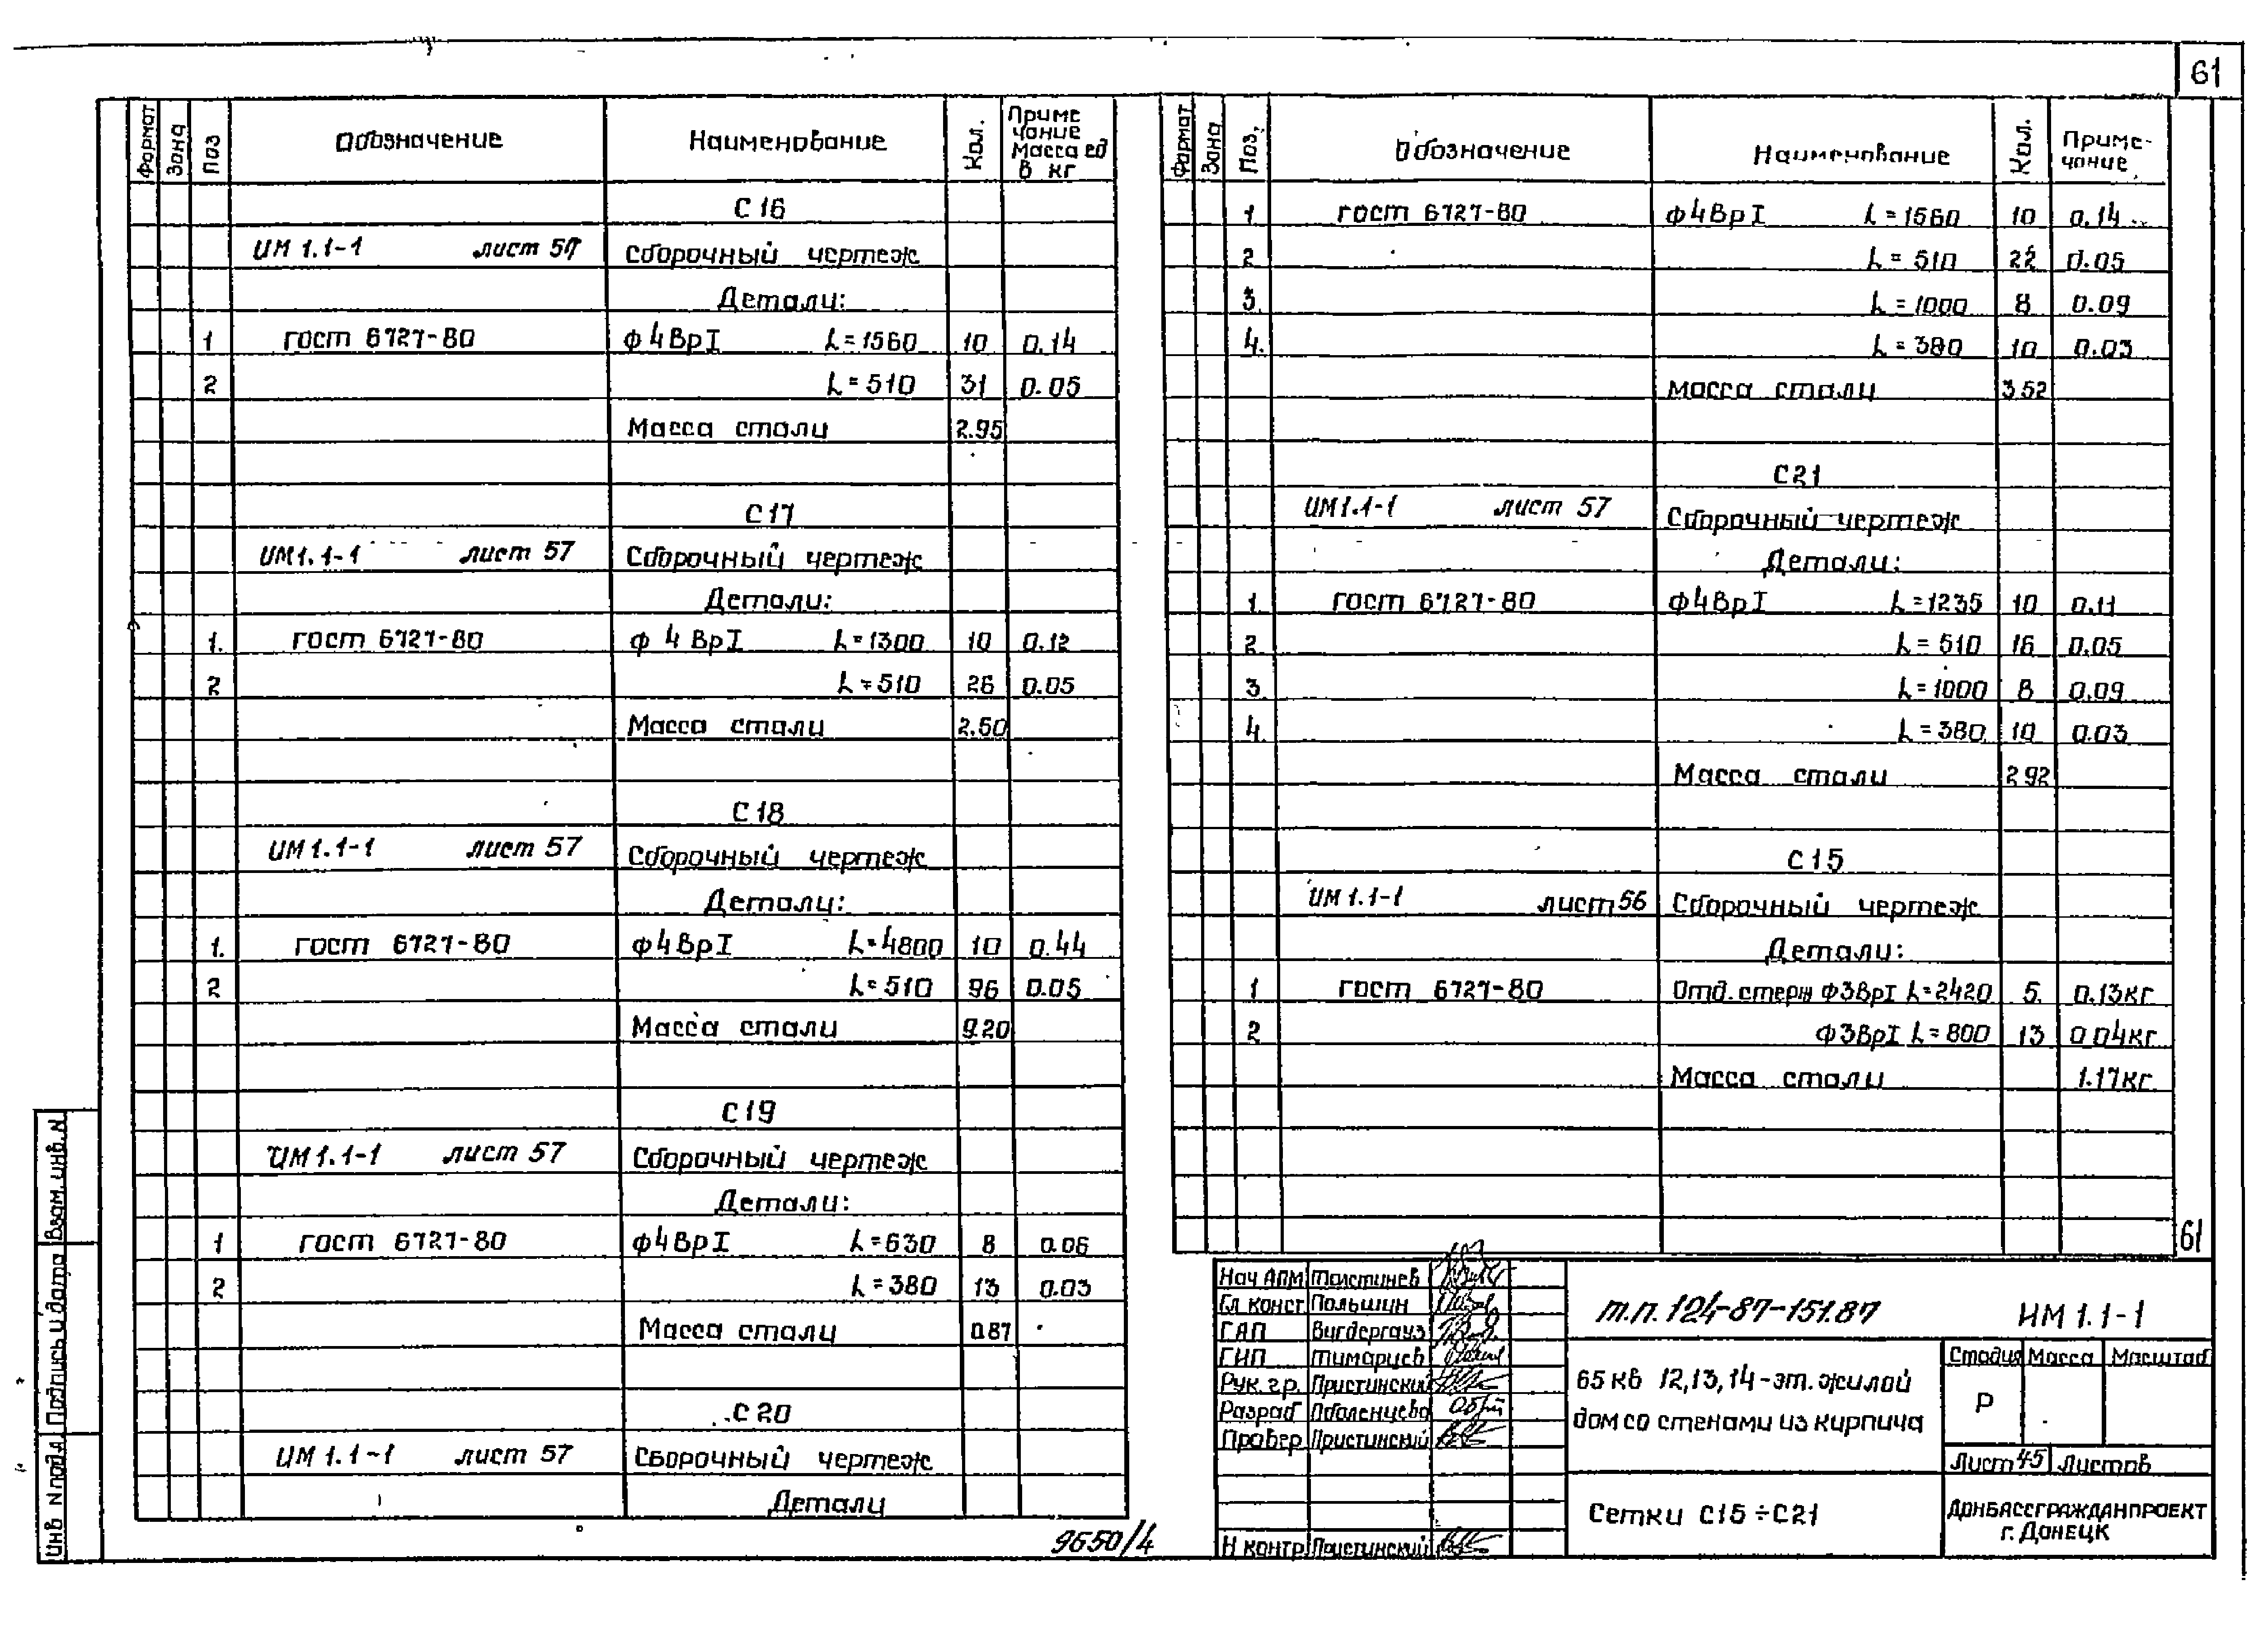 61
Формат Зона Поз Обозначение Наименование Кол. Приме чание Масса ед в кг
С16
ИМ 1.1-1 лист 57 Сборочный чертеж
Детали:
1 ГОСТ 6727-80 ф4ВрI L=1560 10 0.14
2 L=510 31 0.05
Масса стали 2.95
С17
ИМ1.1-1 лист 57 Сборочный чертеж
Детали:
1. ГОСТ 6727-80 ф 4 ВрI L=1300 10 0.12
2 L=510 26 0.05
Масса стали 2.50
С18
ИМ1.1-1 лист 57 Сборочный чертеж
Детали:
1. ГОСТ 6727-80 ф4ВрI L=4800 10 0.44
2 L=510 96 0.05
Масса стали 9.20
С19
ИМ1.1-1 лист 57 Сборочный чертеж
Детали:
1 ГОСТ 6727-80 ф4ВрI L=630 8 0.06
2 L=380 13 0.03
Масса стали 0.87
С20
ИМ 1.1-1 лист 57 Сборочный чертеж
Детали
Формат Зона Поз. Обозначение Наименование Кол. Приме-чание
1 ГОСТ 6727-80 ф4ВрI L=1560 10 0.14
2 L=510 22 0.05
3. L=1000 8 0.09
4. L=380 10 0.03
Масса стали 3.52
С21
ИМ1.1-1 лист 57 Сборочный чертеж
Детали:
1 ГОСТ 6727-80 ф4ВрI L=1235 10 0.11
2 L=510 16 0.05
3 L=1000 8 0.09
4. L=380 10 0.03
Масса стали 2.92
С15
ИМ1.1-1 лист 56 Сборочный чертеж
Детали:
1 ГОСТ 6727-80 Отд.стерж ф3ВрI L=2420 5 0.13кг
2 ф3ВрI L=800 13 0.04кг
Масса стали 1.17кг
61
Нач АПМ Толстичев
Гл конст Польшин
ГАП Вигдергауз
ГИП Тимарцев
Рук.гр. Пристинский
Разраб Оболенцева
Провер Пристинский
Н контр Пристинский
т.п. 124-87-151.87 ИМ 1.1-1
65 кв 12,13,14-эт. жилой
дом со стенами из кирпича
Стадия Масса Масштаб
Р
Лист 45 Листов
Сетки С15÷С21
ДОНБАССГРАЖДАНПРОЕКТ
г. ДОНЕЦК
9650/4
Взам. инв. N
Подпись и дата
Инв N подл